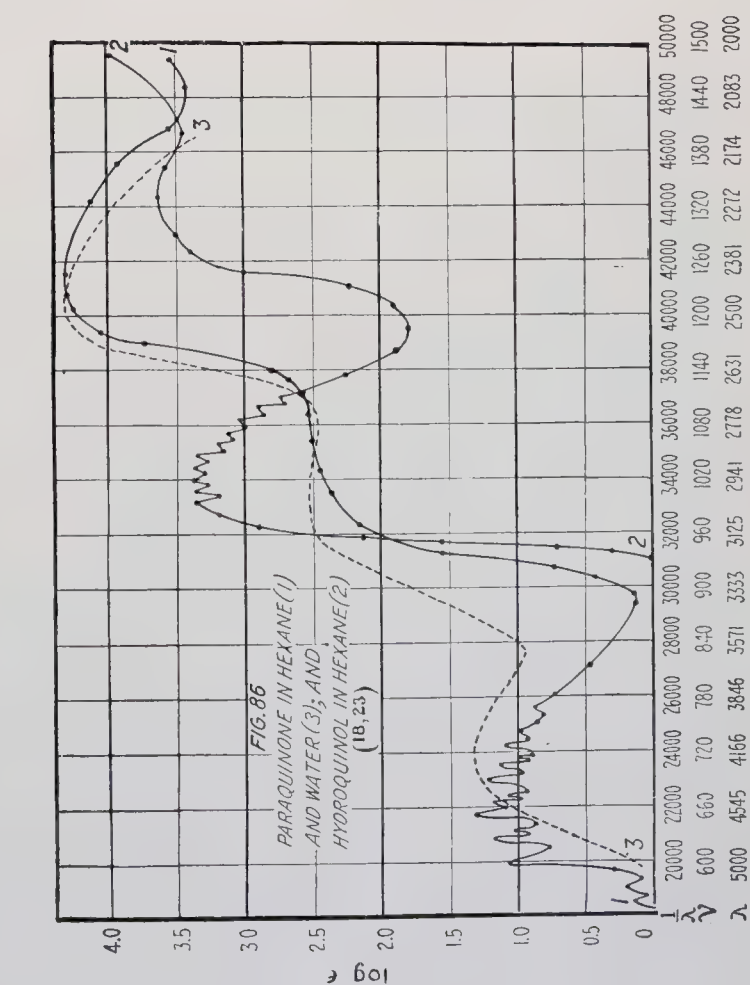 FIG. 86
PARAQUINONE IN HEXANE (1)
AND WATER (3); AND
HYDROQUINOL IN HEXANE (2)
(18, 23)
log ε
4.0
3.5
3.0
2.5
2.0
1.5
1.0
0.5
0
1
2
3
1
2
3
1/λ 20000 22000 24000 26000 28000 30000 32000 34000 36000 38000 40000 42000 44000 46000 48000 50000
ν 600 660 720 780 840 900 960 1020 1080 1140 1200 1260 1320 1380 1440 1500
λ 5000 4545 4166 3846 3571 3333 3125 2941 2778 2631 2500 2381 2272 2174 2083 2000